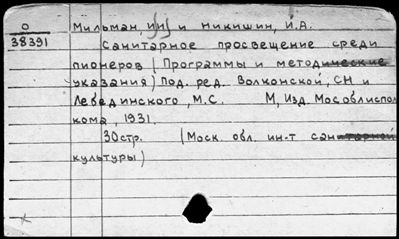 О
38391
Мильман, И и Никишин, И.А.
Санитарное просвещение среди
пионеров (Программы и методические
указания) Под. ред. Волконской, СН и
Лебединского, М.С. М, Изд. Мособлиспол
кома, 1931.
30стр. (Моск. обл. ин-т санитарной
культуры)